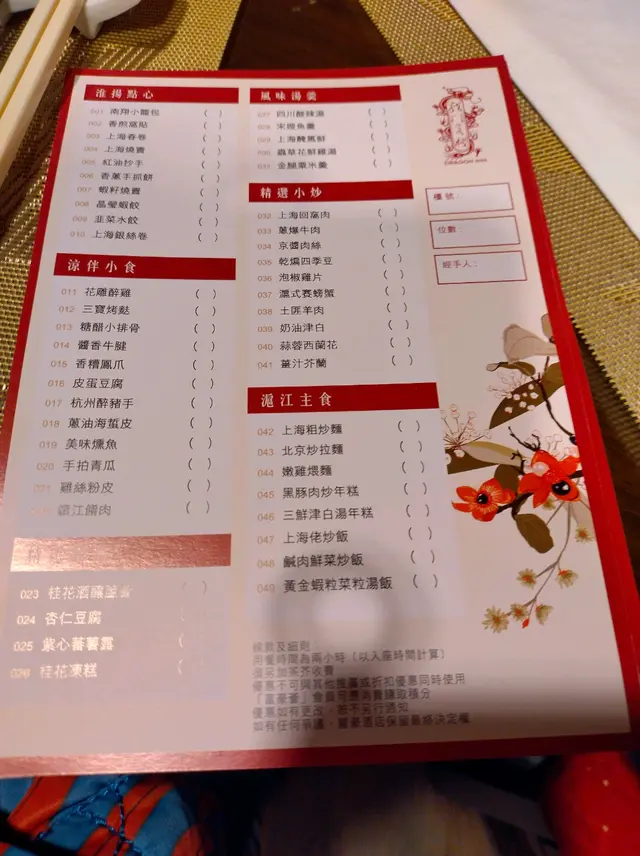 淮揚點心
001 南翔小籠包 ( )
002 香煎窩貼 ( )
003 上海春卷 ( )
004 上海燒賣 ( )
005 紅油抄手 ( )
006 香蔥手抓餅 ( )
007 蝦籽燒賣 ( )
008 晶瑩蝦餃 ( )
009 韭菜水餃 ( )
010 上海銀絲卷 ( )
涼伴小食
011 花雕醉雞 ( )
012 三寶烤麩 ( )
013 糖醋小排骨 ( )
014 醬香牛腱 ( )
015 香糟鳳爪 ( )
016 皮蛋豆腐 ( )
017 杭州醉豬手 ( )
018 蔥油海蜇皮 ( )
019 美味燻魚 ( )
020 手拍青瓜 ( )
021 雞絲粉皮 ( )
鎮江餚肉 ( )
023 桂花酒釀 ( )
024 杏仁豆腐 (
025 紫心蕃薯露 (
026 桂花凍糕 (
風味湯羹
027 四川酸辣湯 ( )
028 宋嫂魚羹 ( )
029 上海醃篤鮮 ( )
030 蟲草花鮮雞湯 ( )
031 金腿粟米羹 ( )
精選小炒
032 上海回窩肉 ( )
033 蔥爆牛肉 ( )
034 京醬肉絲 ( )
035 乾煸四季豆 ( )
036 泡椒雞片 ( )
037 滬式賽螃蟹 ( )
038 土匪羊肉 ( )
039 奶油津白 ( )
040 蒜蓉西蘭花 ( )
041 薑汁芥蘭 ( )
滬江主食
042 上海粗炒麵 ( )
043 北京炒拉麵 ( )
044 嫩雞煨麵 ( )
045 黑豚肉炒年糕 ( )
046 三鮮津白湯年糕 ( )
047 上海佬炒飯 ( )
048 鹹肉鮮菜炒飯 ( )
049 黃金蝦粒菜粒湯飯 ( )
條款及細則：
用餐時間為兩小時（以入座時間計算）
須另加茶芥收費
優惠不可與其他推廣或折扣優惠同時使用
「富豪薈」會員可憑消費賺取積分
優惠如有更改，恕不另行通知
如有任何爭議，富豪酒店保留最終決定權
DRAGON INN
檯號：
位數：
經手人：